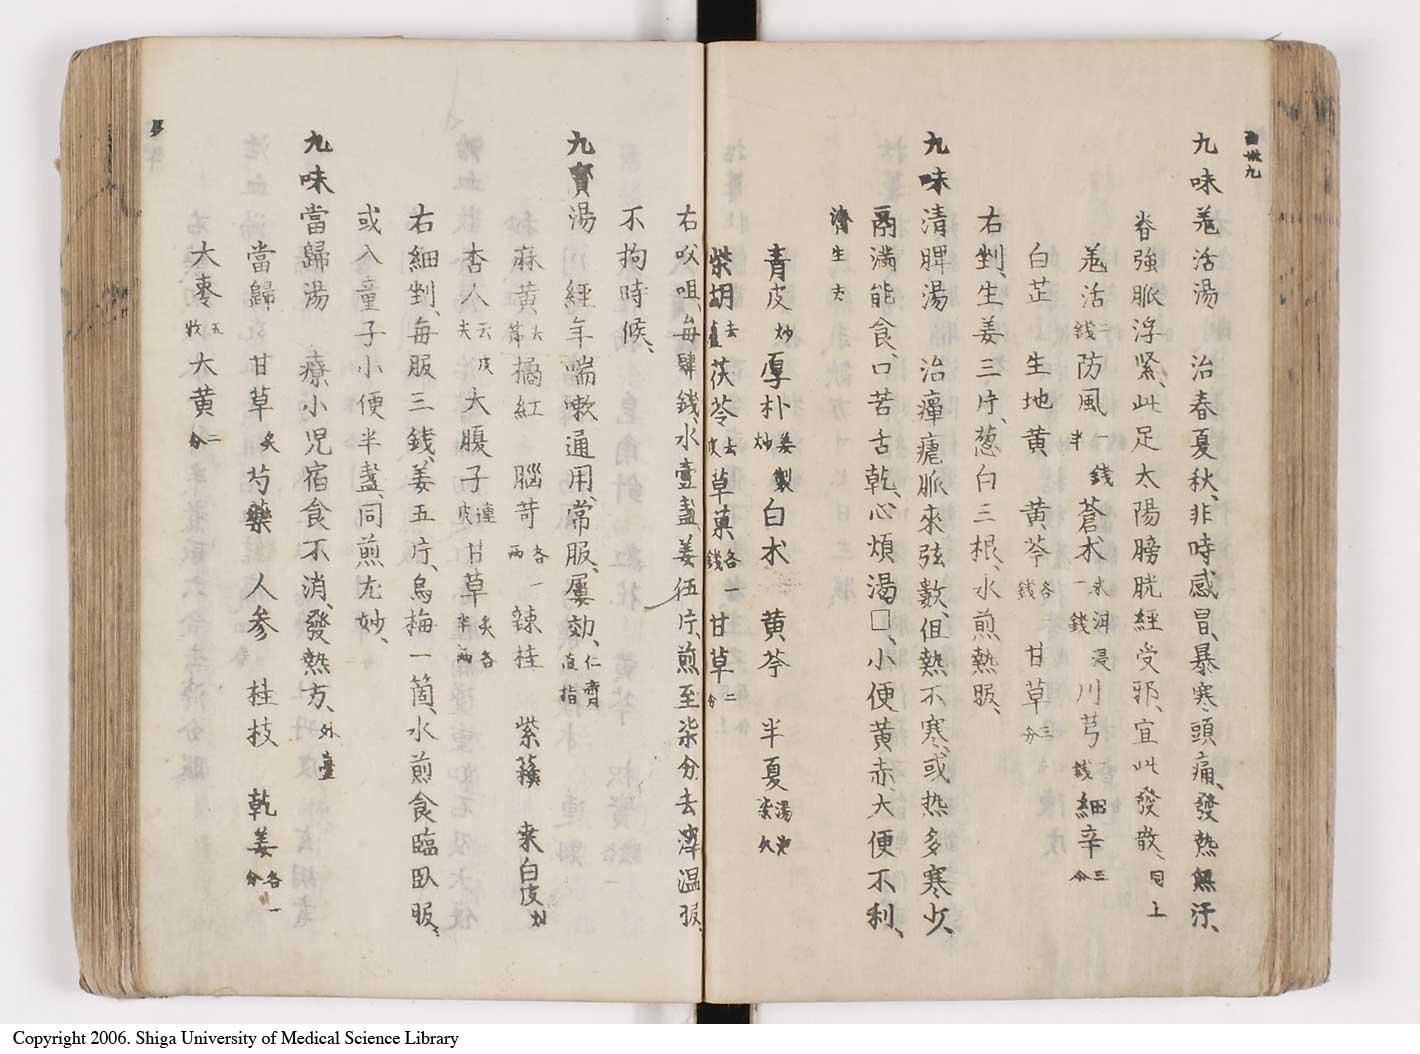 百卅九
九味羗活湯　治春夏秋、非時感冒、暴寒頭痛、發熱無汗、
脊強脈浮緊、此足太陽膀胱經受邪、宜此發散、同上
羗活二錢 防風一錢半 蒼朮一錢 米泔浸 川芎錢 細辛三分
白芷　生地黄　黄芩各錢　甘草三分
右剉、生姜三片、葱白三根、水煎熱服、
九味清脾湯　治癉瘧脈來弦數、但熱不寒、或热多寒少、
鬲滿能食、口苦舌乾、心煩渴□、小便黄赤、大便不利、
濟生方
青皮炒 厚朴姜製炒 白朮　黄芩　半夏湯泡
柴胡去蘆 茯苓去皮 草菓各一錢 甘草二分
右㕮咀、每肆錢、水壹盞、姜伍片、煎至柒分去滓温服、
不拘時候、
九寳湯　經年喘嗽、通用、常服、屢効、仁齊直指
麻黄去節 橘紅　腦荷各一兩　辣桂　紫蘓　桑白皮炒
杏人去皮尖 大腹子連皮 甘草炙各半兩
右細剉、每服三錢、姜五片、烏梅一箇、水煎食臨臥服、
或入童子小便半盞、同煎尤妙、
九味當歸湯　療小児宿食不消、發熱方、外臺
當歸　甘草炙 芍藥　人参　桂枝　乾姜各一分
大棗五枚 大黄二分